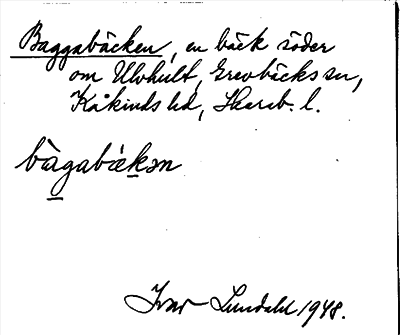 Baggabäcken, en bäck söder
om Ulvhult, Grevbäcks sn,
Kåkinds hd, Skarab. l.
bàgabækən
Ivar Lundahl 1948.